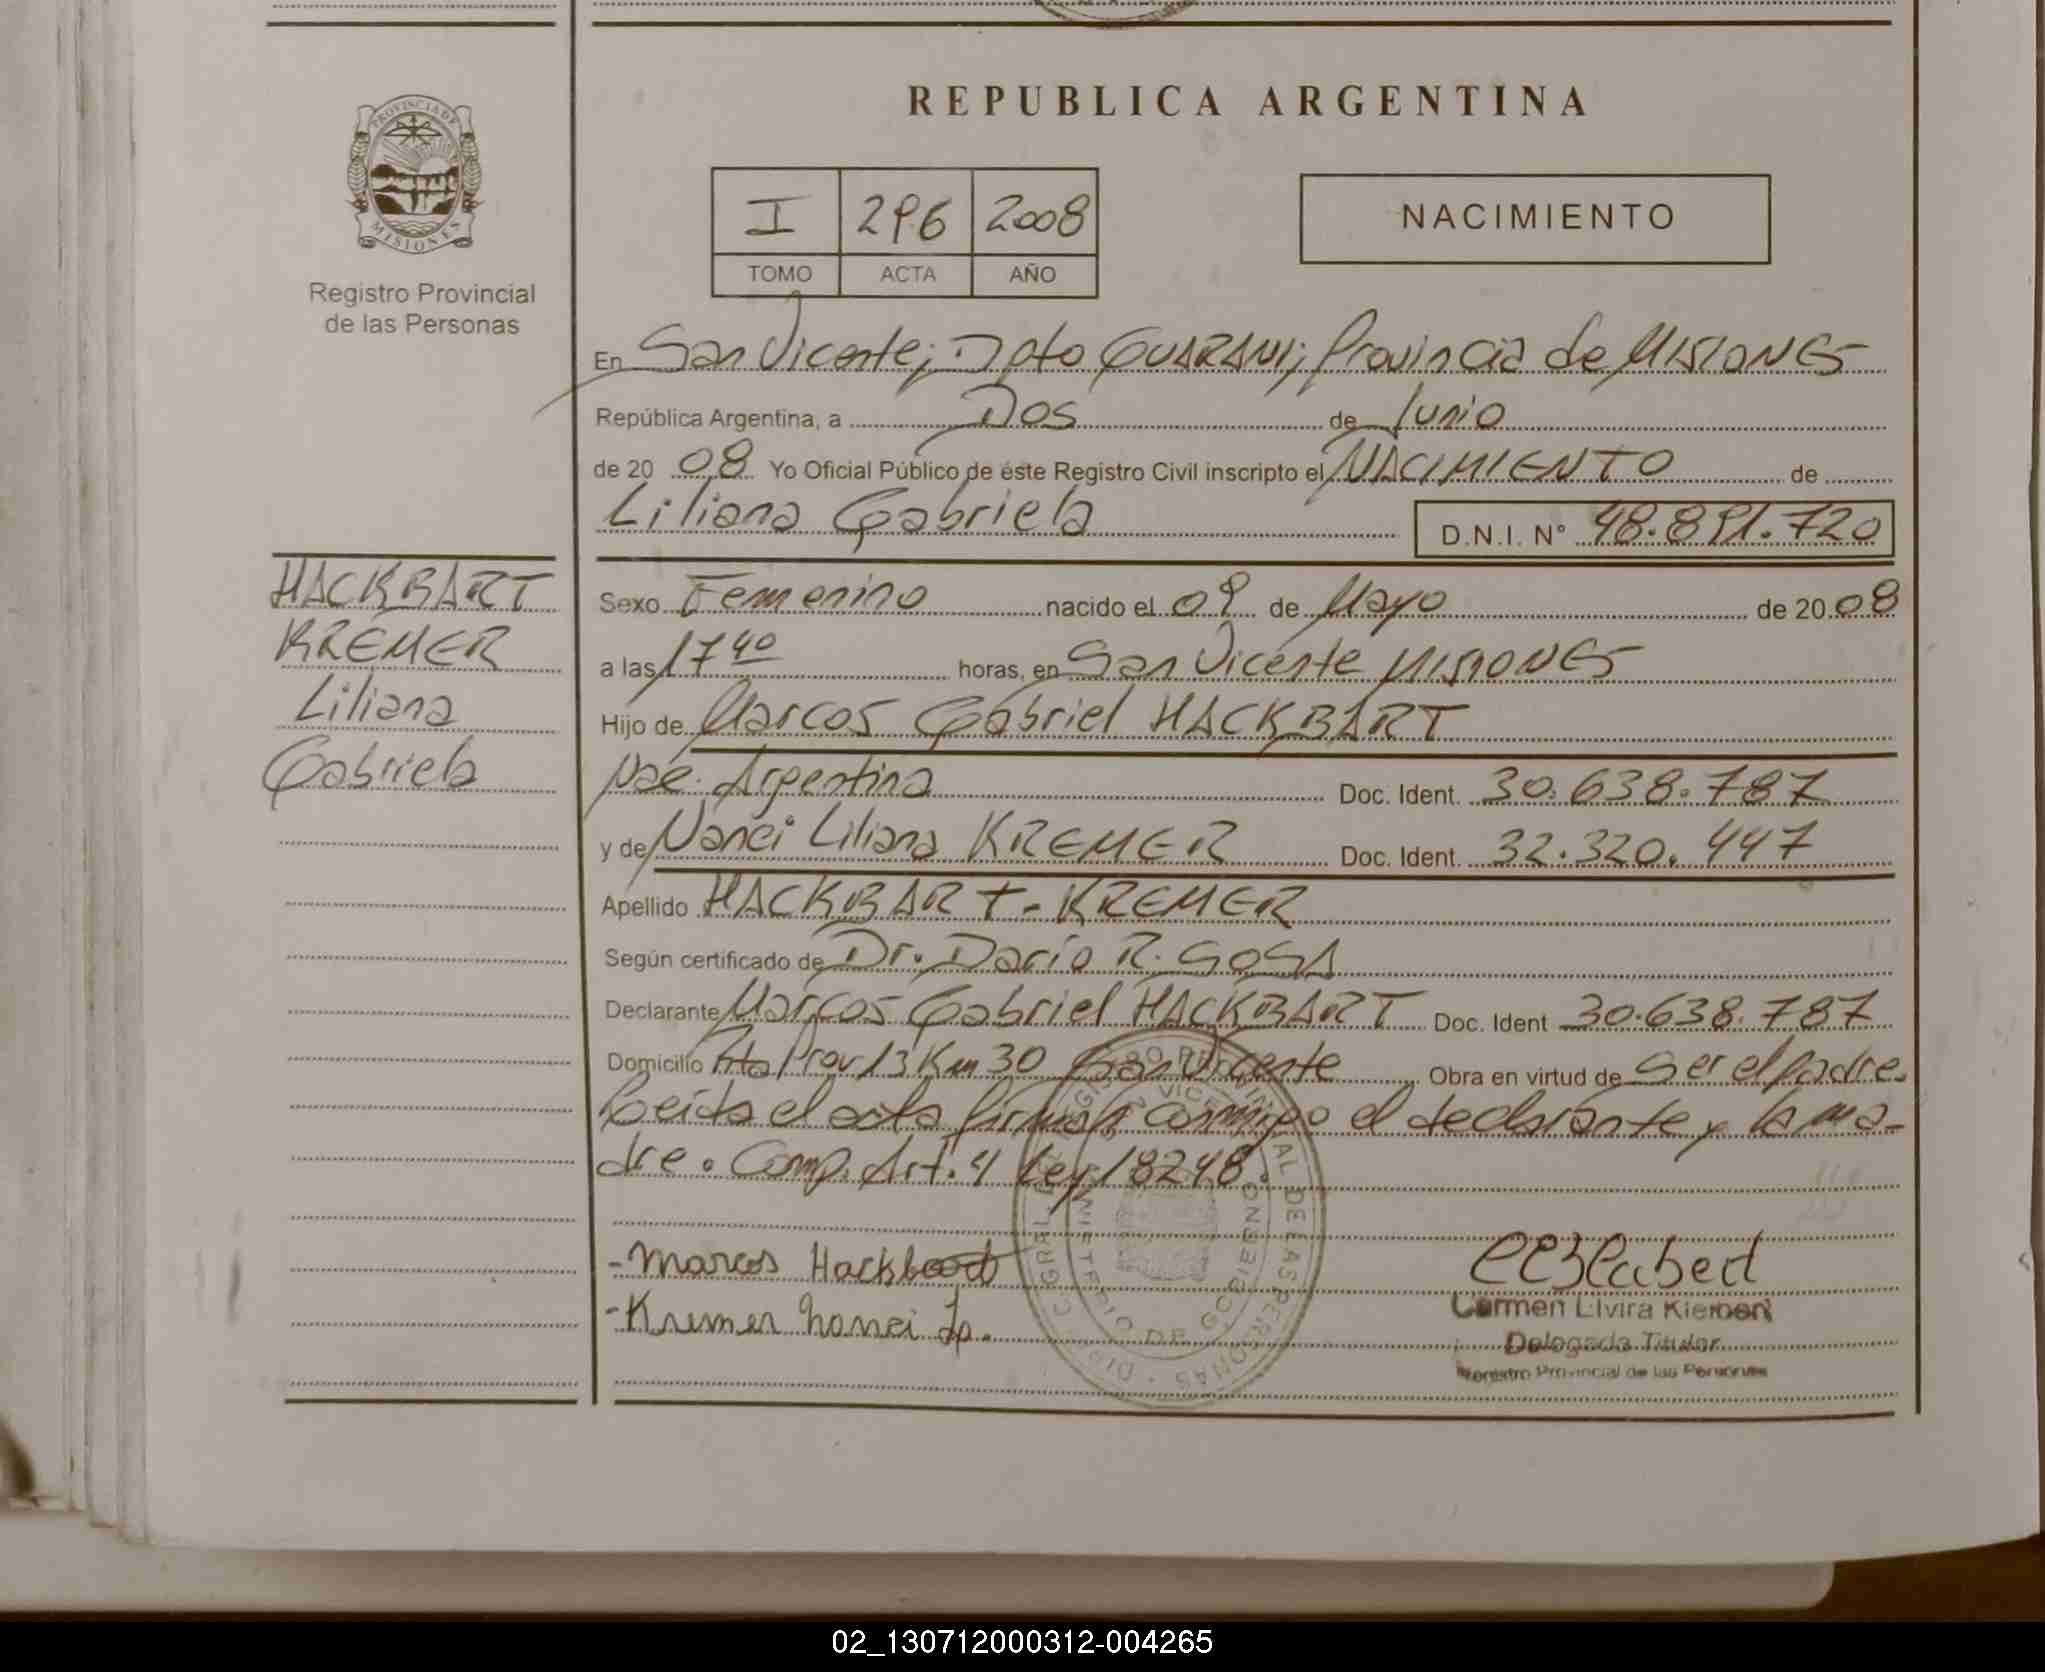 REPUBLICA ARGENTINA
PROVINCIA DE
MISIONES
Registro Provincial
de las Personas
I 296 2008
TOMO ACTA AÑO
NACIMIENTO
En San Vicente; Dpto GUARANI; Provincia de MISIONES
República Argentina, a Dos de Junio
de 20 08 Yo Oficial Público de éste Registro Civil inscripto el NACIMIENTO de
Liliana Gabriela
D.N.I. Nº 48.891.720
HACKBART
KREMER
Liliana
Gabriela
Sexo Femenino nacido el 09 de Mayo de 20 08
a las 17 40 horas, en San Vicente MISIONES
Hijo de Marcos Gabriel HACKBART
Nac. Argentina Doc. Ident. 30.638.787
y de Nanci Liliana KREMER Doc. Ident. 32.320.447
Apellido HACKBART - KREMER
Según certificado de Dr. Darío R. SOSA
Declarante Marcos Gabriel HACKBART Doc. Ident 30.638.787
Domicilio Rta Prov 13 Km 30 San Vicente Obra en virtud de Ser el padre.
Leída el acta firman conmigo el declarante y la ma-
dre. Comp. Art. 4 Ley 18248.
- Marcos Hackbart
- Kremer Nanci
Carmen Elvira
Delegada Titular
Registro Provincial de las Personas
02_130712000312-004265